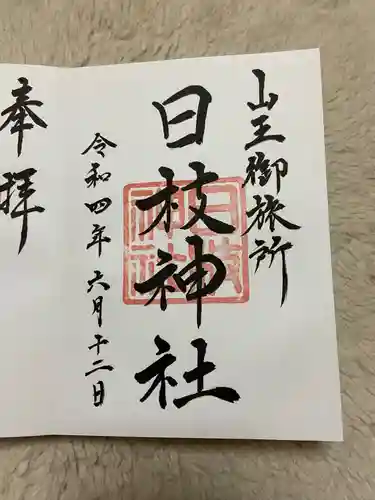 山王御旅所
日枝神社
令和四年六月十二日
奉拝
日枝
神社